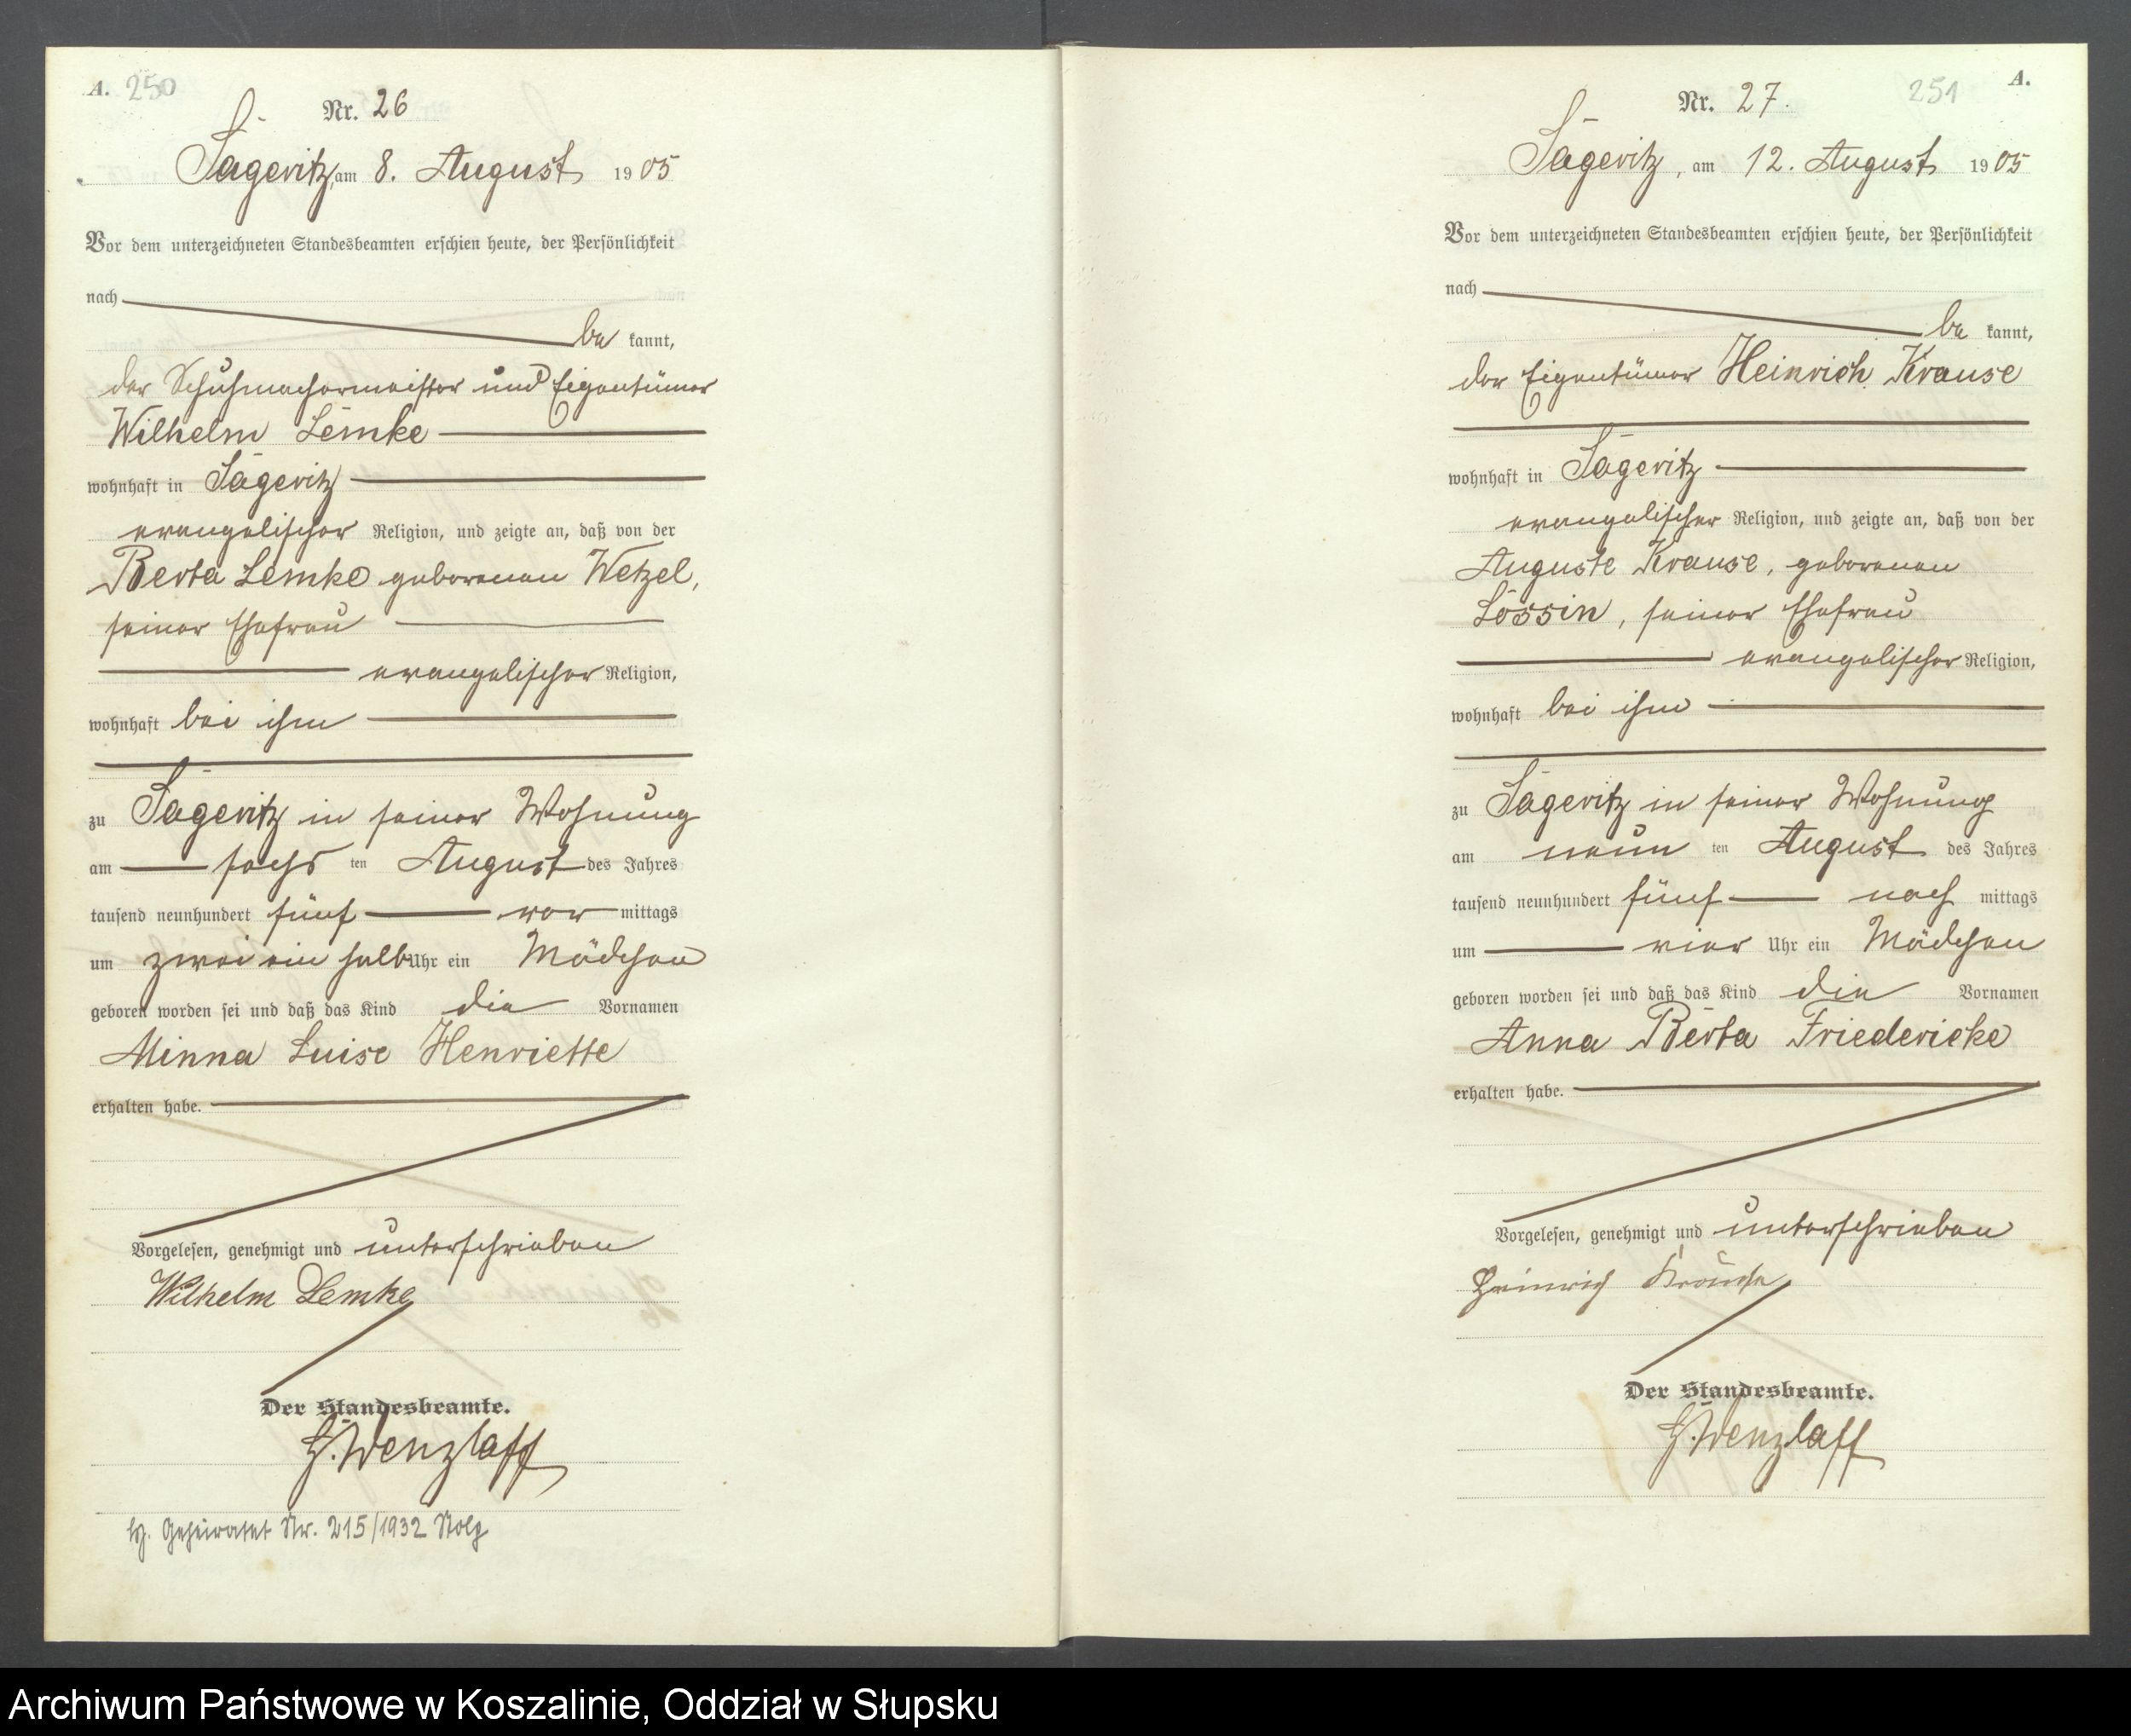 A. 250
Nr. 26
Sageritz, am 8. August 1905
Vor dem unterzeichneten Standesbeamten erschien heute, der Persönlichkeit
nach
be kannt,
der Schuhmachermeister und Eigentümer
Wilhelm Lemke
wohnhaft in Sageritz
evangelischer Religion, und zeigte an, daß von der
Berta Lemke geborenen Wetzel,
seiner Ehefrau
evangelischer Religion,
wohnhaft bei ihm
zu Sageritz in seiner Wohnung
am sechs ten August des Jahres
tausend neunhundert fünf vor mittags
um zwei ein halb Uhr ein Mädchen
geboren worden sei und daß das Kind die Vornamen
Minna Luise Henriette
erhalten habe.
Vorgelesen, genehmigt und unterschrieben
Wilhelm Lemke
Der Standesbeamte.
H. Wenzlaff
Geheiratet Nr. 215/1932 Stolp
251 A.
Nr. 27.
Sageritz, am 12. August 1905
Vor dem unterzeichneten Standesbeamten erschien heute, der Persönlichkeit
nach
be kannt,
der Eigentümer Heinrich Krause
wohnhaft in Sageritz
evangelischer Religion, und zeigte an, daß von der
Auguste Krause, geborenen
Lössin, seiner Ehefrau
evangelischer Religion,
wohnhaft bei ihm
zu Sageritz in seiner Wohnung
am neun ten August des Jahres
tausend neunhundert fünf nach mittags
um vier Uhr ein Mädchen
geboren worden sei und daß das Kind die Vornamen
Anna Berta Friedericke
erhalten habe.
Vorgelesen, genehmigt und unterschrieben
Heinrich Krause
Der Standesbeamte.
H. Wenzlaff
Archiwum Państwowe w Koszalinie, Oddział w Słupsku